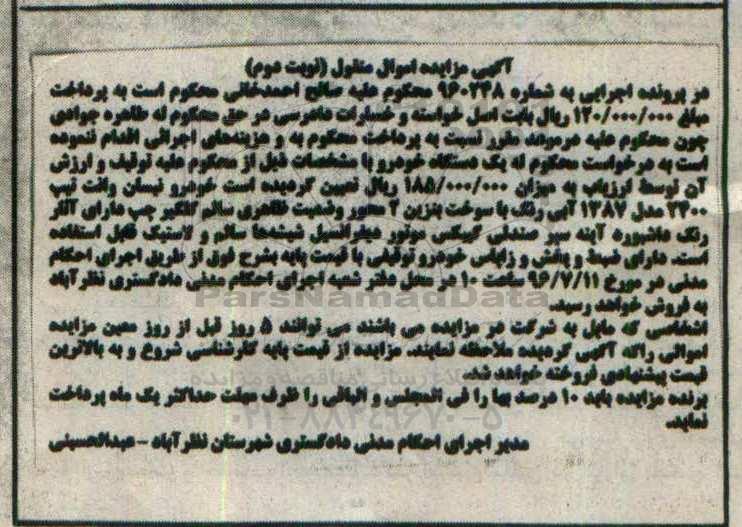 آگهی مزایده اموال منقول (نوبت دوم)
در پرونده اجرایی به شماره ۹۶۰۲۴۸ محکوم علیه صالح احمدخانی محکوم است به پرداخت
مبلغ ۱۲۰/۰۰۰/۰۰۰ ریال بابت اصل خواسته و خسارات دادرسی در حق محکوم له طاهره جوادی
چون محکوم علیه در موعد مقرر نسبت به پرداخت محکوم به و هزینه‌های اجرائی اقدام ننموده
است به درخواست محکوم له یک دستگاه خودرو با مشخصات ذیل از محکوم علیه توقیف و ارزش
آن توسط ارزیاب به میزان ۱۸۵/۰۰۰/۰۰۰ ریال تعیین گردیده است خودرو نیسان وانت تیپ
۲۴۰۰ مدل ۱۳۸۷ آبی رنگ با سوخت بنزین ۲ محور وضعیت ظاهری سالم گلگیر چپ دارای آثار
رنگ داشبورد آینه سپر صندلی گیربکس موتور دیفرانسیل شیشه‌ها سالم و لاستیک قابل استفاده
است. دارای ضبط و پخش و زاپاس خودرو توقیفی با قیمت پایه بشرح فوق از طریق اجرای احکام
مدنی در مورخ ۹۶/۷/۱۱ ساعت ۱۰ در محل دفتر شعبه اجرای احکام مدنی دادگستری نظرآباد
به فروش خواهد رسید.
ParsNamadData
اشخاصی که مایل به شرکت در مزایده می باشند می توانند ۵ روز قبل از روز معین مزایده
اموالی راکه آگهی گردیده ملاحظه نمایند. مزایده از قیمت پایه کارشناسی شروع و به بالاترین
قیمت پیشنهادی فروخته خواهد شد.
برنده مزایده باید ۱۰ درصد بها را فی المجلس و الباقی را ظرف مهلت حداکثر یک ماه پرداخت
نماید.
۰۲۱-۸۸۳۴۹۶۷۰-۵
مدیر اجرای احکام مدنی دادگستری شهرستان نظرآباد - عبدالحسینی